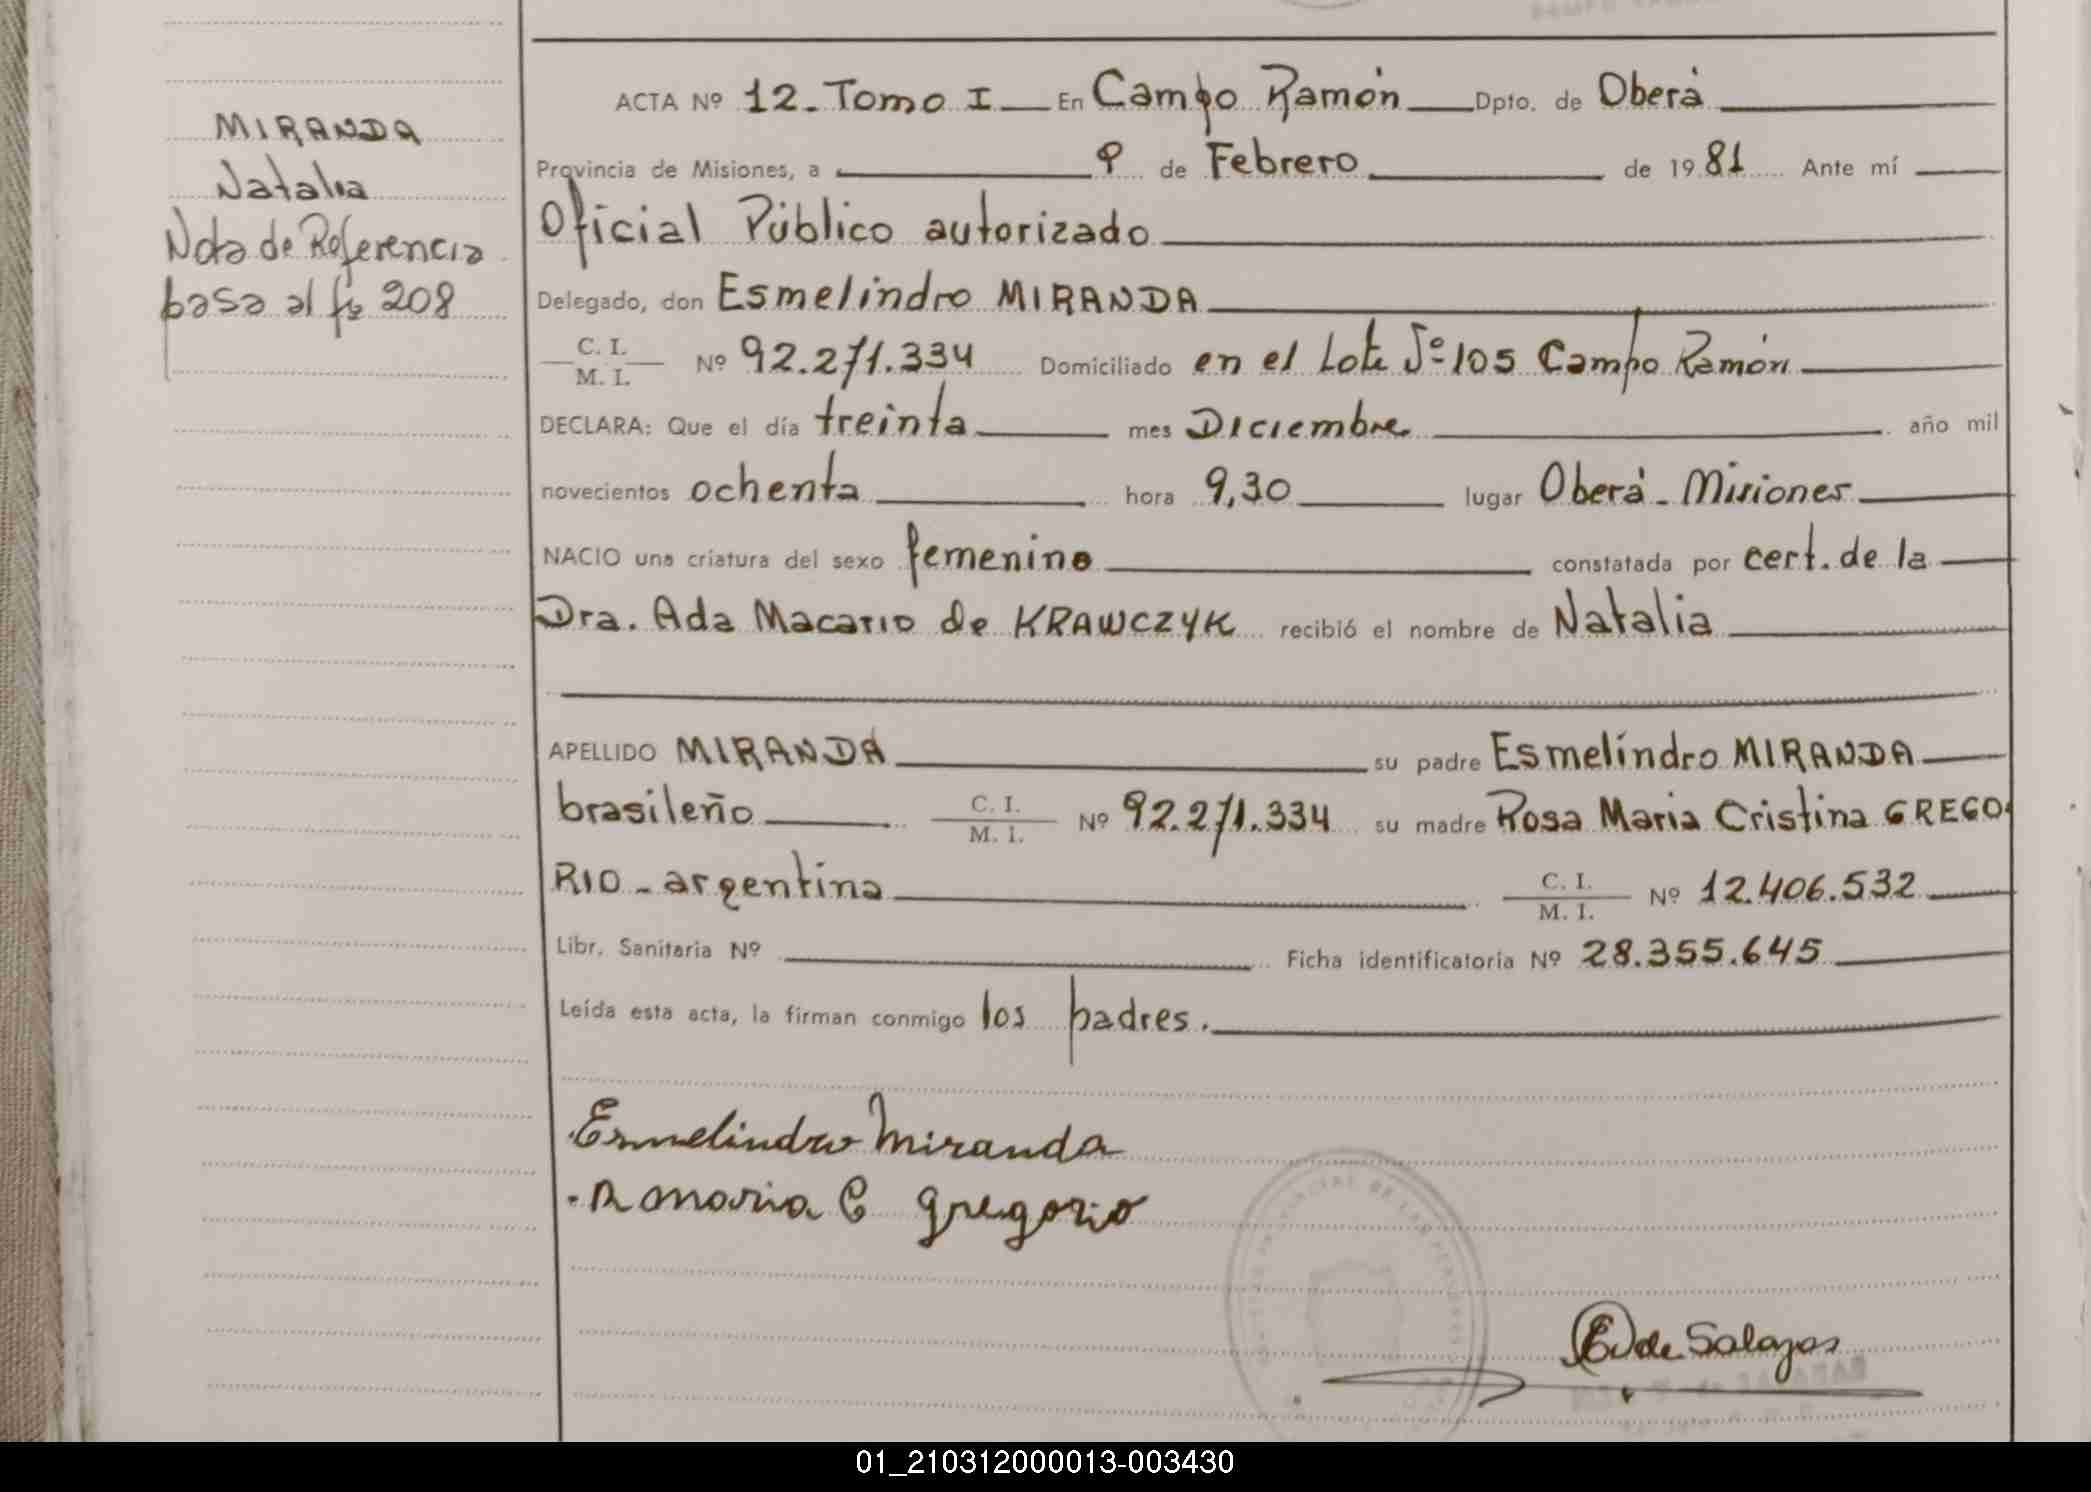 MIRANDA
Natalia
Nota de Referencia
pasa al fs 208
ACTA Nº 12. Tomo I En Campo Ramón Dpto. de Oberá
Provincia de Misiones, a 9 de Febrero de 1981 Ante mí
Oficial Público autorizado
Delegado, don Esmelindro MIRANDA
C. I.
M. I. Nº 92.271.334 Domiciliado en el Lote Nº 105 Campo Ramón
DECLARA: Que el día treinta mes Diciembre año mil
novecientos ochenta hora 9,30 lugar Oberá - Misiones
NACIO una criatura del sexo femenino constatada por cert. de la
Dra. Ada Macario de KRAWCZYK recibió el nombre de Natalia
APELLIDO MIRANDA su padre Esmelindro MIRANDA
brasileño C. I. M. I. Nº 92.271.334 su madre Rosa Maria Cristina GREGO
RIO - argentina C. I. M. I. Nº 12.406.532
Libr. Sanitaria Nº Ficha identificatoria Nº 28.355.645
Leída esta acta, la firman conmigo los padres.
Esmelindro Miranda
R Maria C Gregorio
de Salazar
01_210312000013-003430